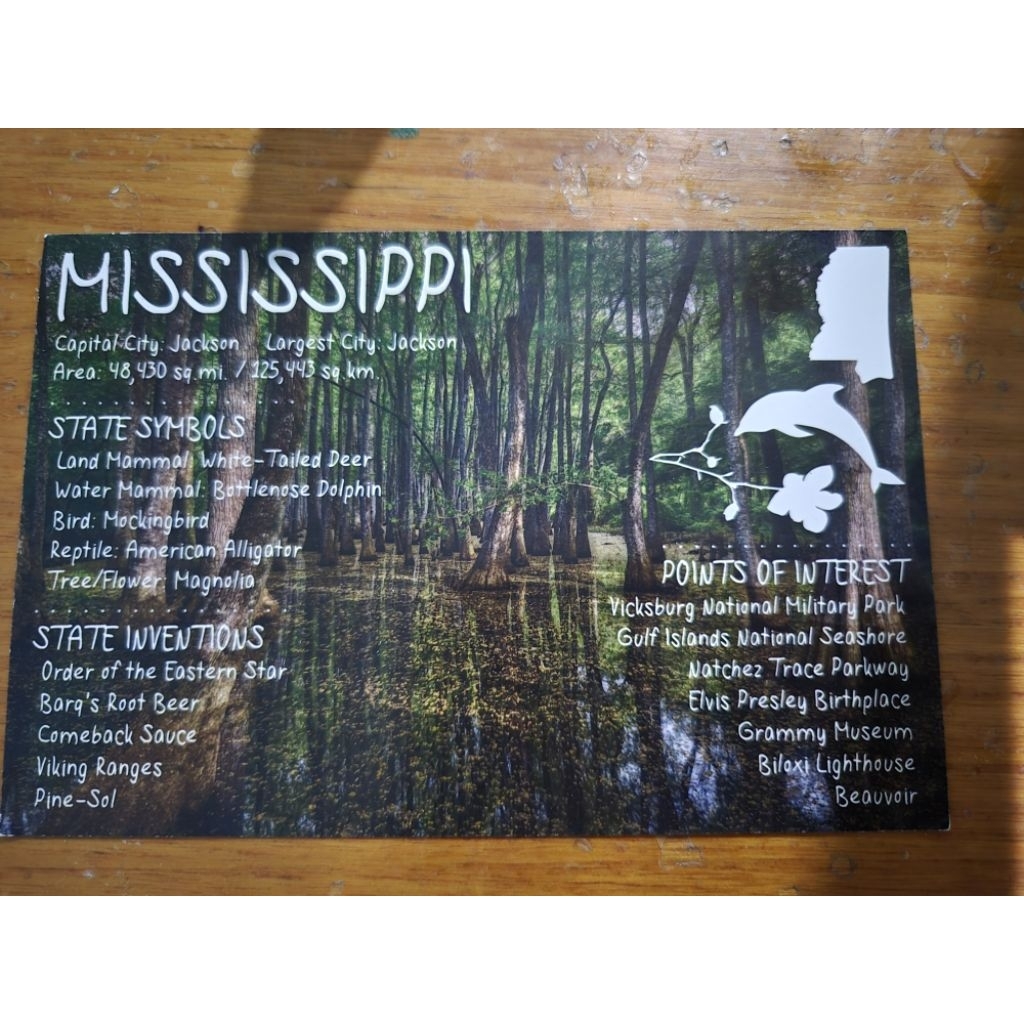 MISSISSIPPI
Capital City: Jackson Largest City: Jackson
Area: 48,430 sq.mi. / 125,443 sq.km.
STATE SYMBOLS
Land Mammal: White-Tailed Deer
Water Mammal: Bottlenose Dolphin
Bird: Mockingbird
Reptile: American Alligator
Tree/Flower: Magnolia
STATE INVENTIONS
Order of the Eastern Star
Barq's Root Beer
Comeback Sauce
Viking Ranges
Pine-Sol
POINTS OF INTEREST
Vicksburg National Military Park
Gulf Islands National Seashore
Natchez Trace Parkway
Elvis Presley Birthplace
Grammy Museum
Biloxi Lighthouse
Beauvoir